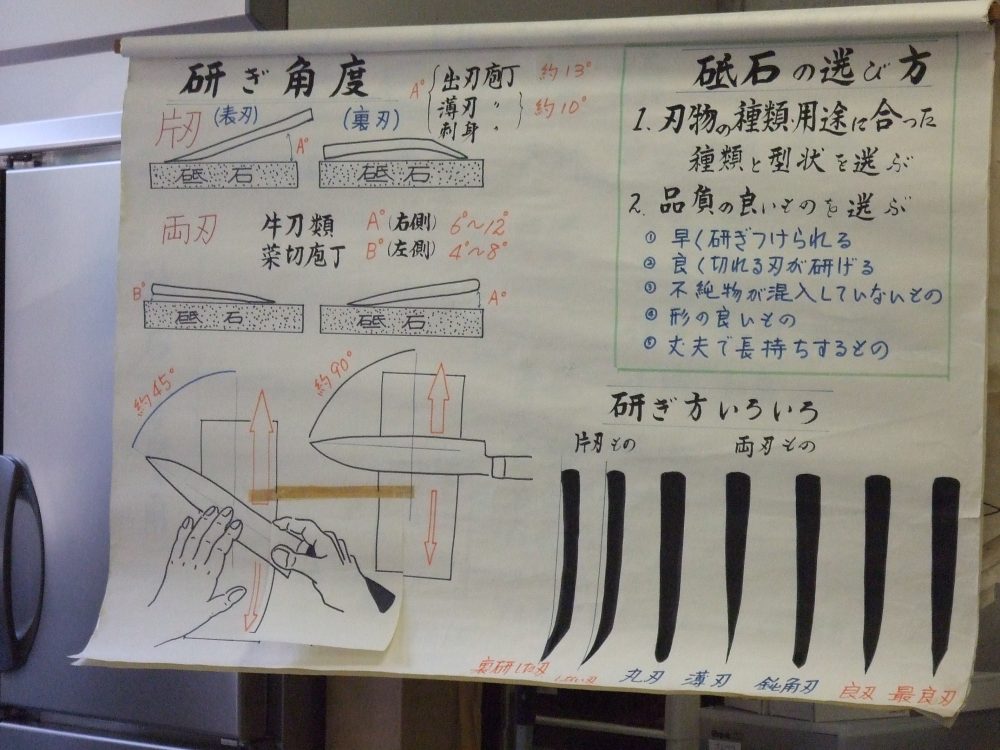 研ぎ角度
片刃
(表刃)
A°
砥石
(裏刃)
砥石
A°
出刃庖丁 約13°
薄刃 〃 約10°
刺身 〃
両刃
牛刀類 A°(右側) 6°~12°
菜切庖丁 B°(左側) 4°~8°
B°
砥石
砥石
A°
約45°
約90°
砥石の選び方
1. 刃物の種類・用途に合った
種類と型状を選ぶ
2. 品質の良いものを選ぶ
① 早く研ぎつけられる
② 良く切れる刃が研げる
③ 不純物が混入していないもの
④ 形の良いもの
⑤ 丈夫で長持ちするもの
研ぎ方いろいろ
片刃もの
両刃もの
裏研した刃
しない刃
丸刃
薄刃
鈍角刃
良刃
最良刃